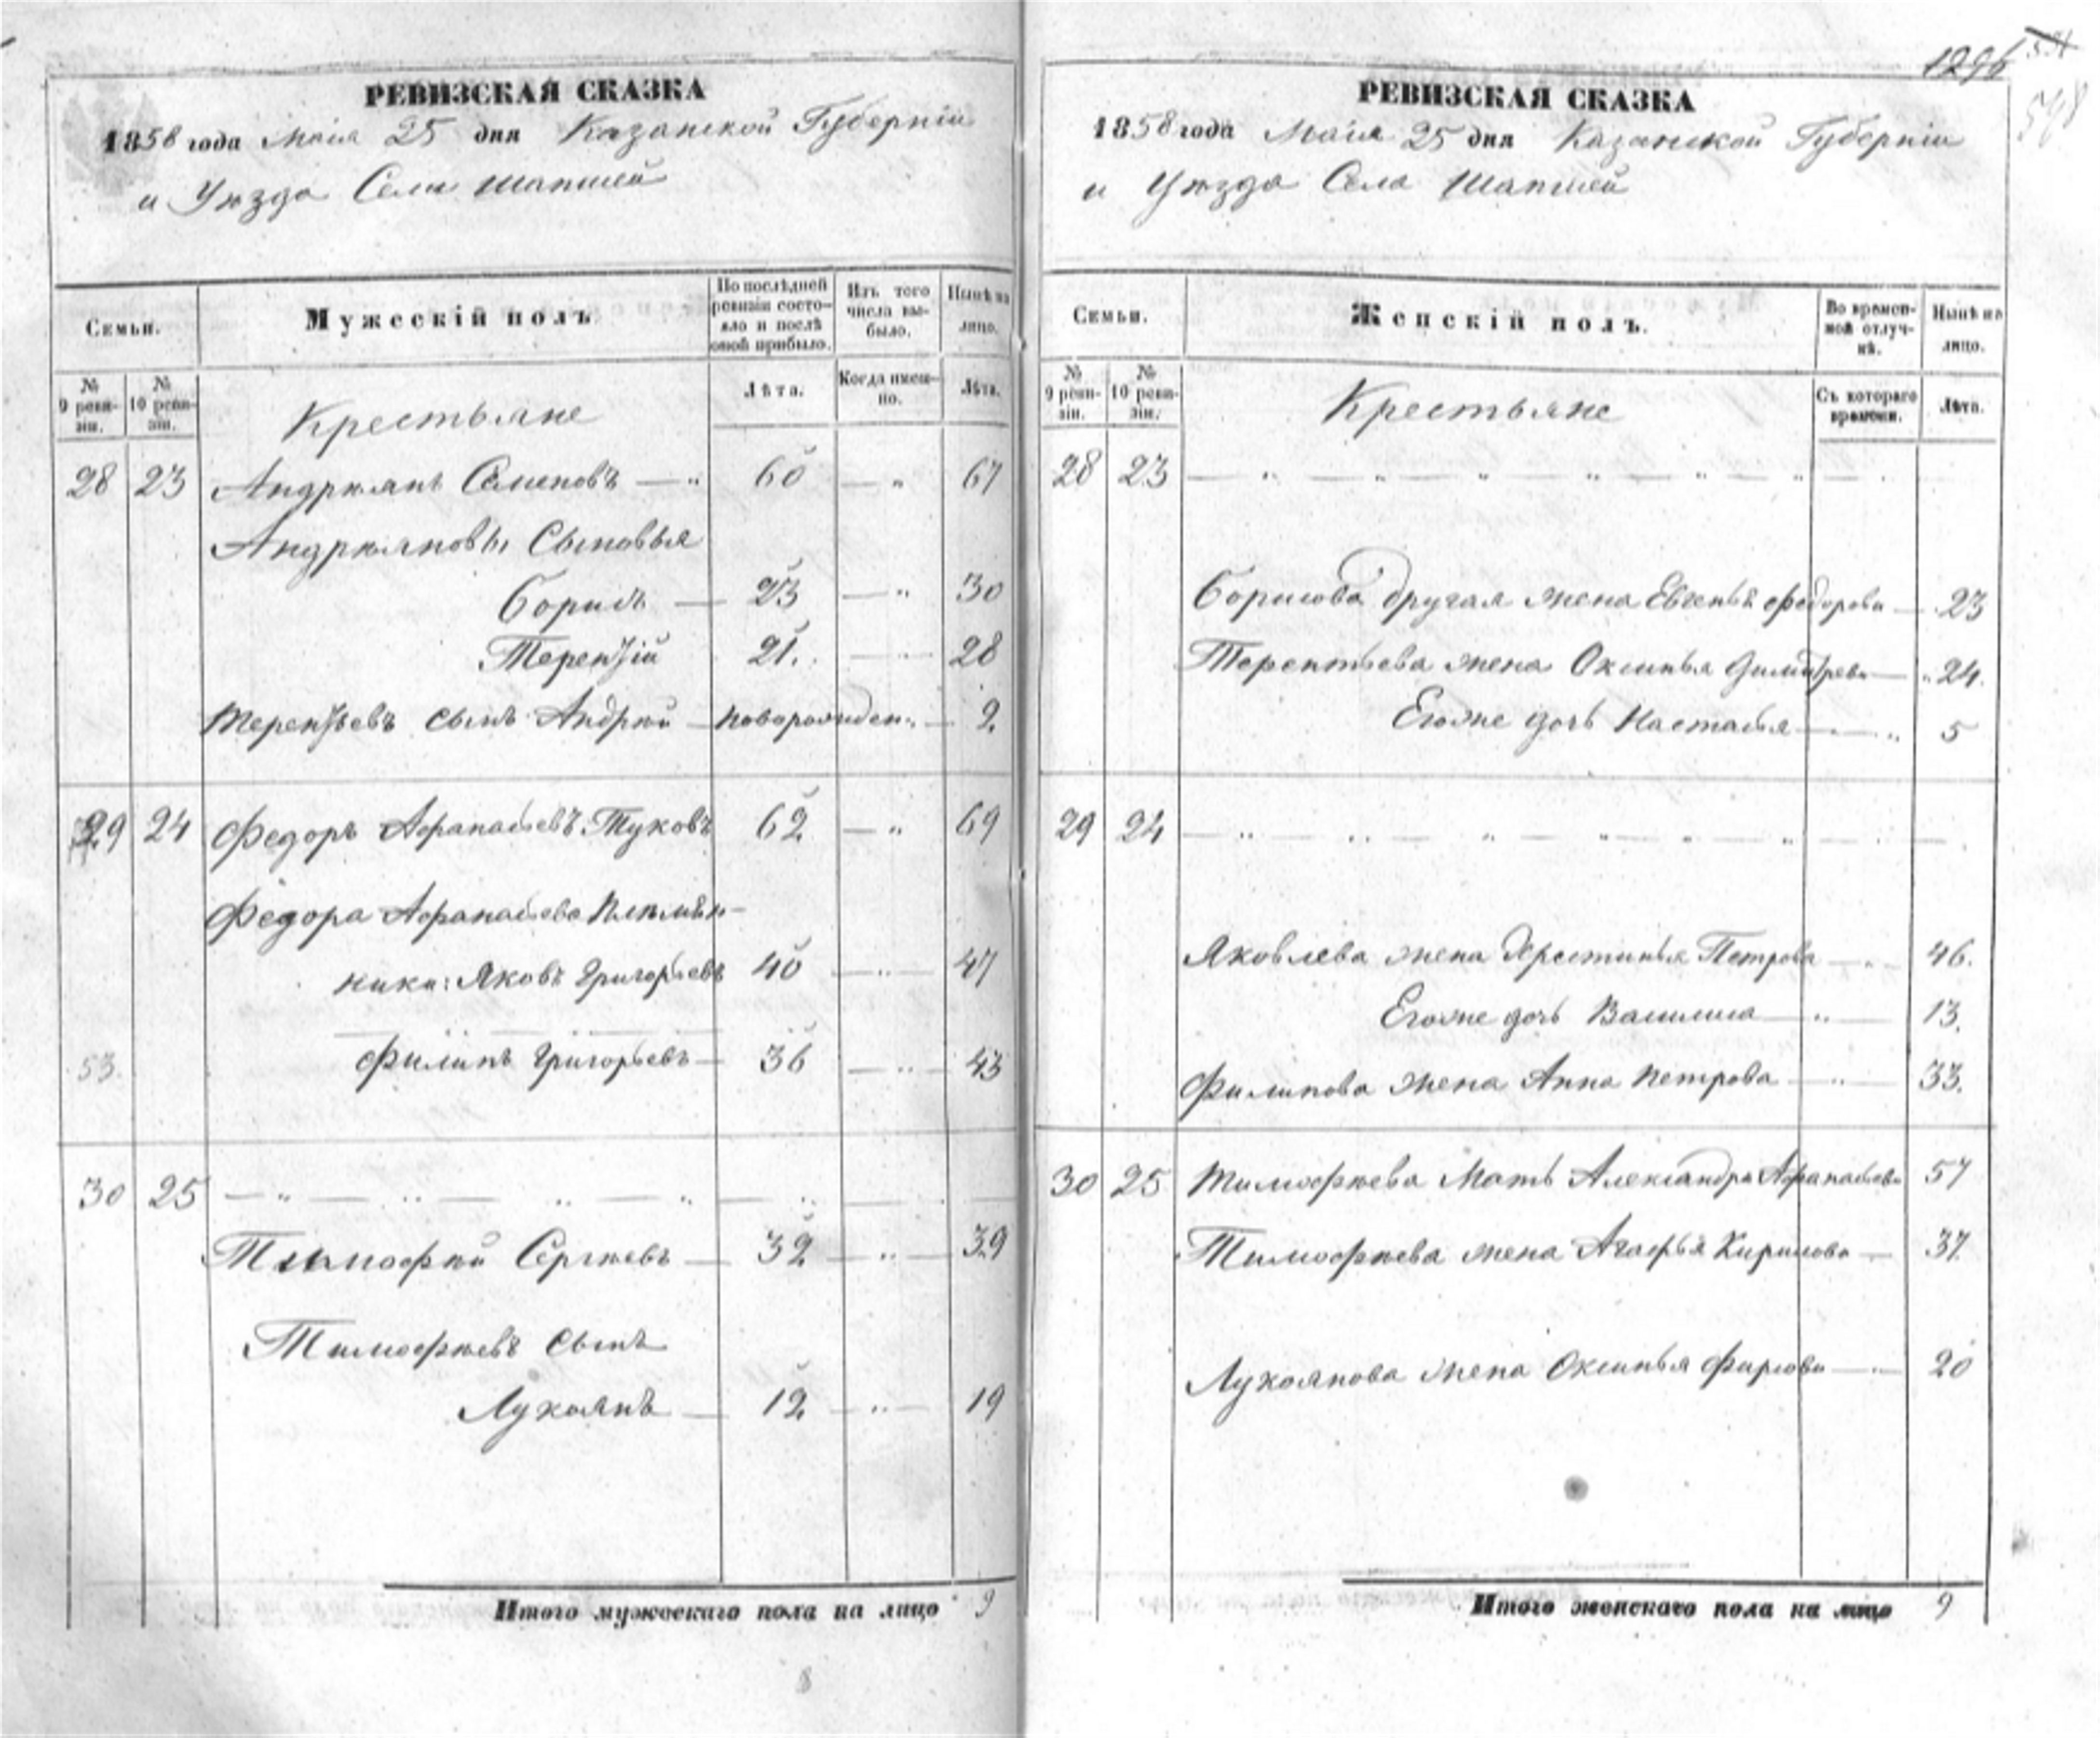 РЕВИЗСКАЯ СКАЗКА
1858 года Маія 25 дня Казанской Губерніи
и Уѣзда Села Шапшей
Семьи.
Мужескій полъ
По послѣдней ревизіи состояло и послѣ оной прибыло.
Изъ того числа выбыло.
Нынѣ на лицо.
№ 9 ревизіи.
№ 10 ревизіи.
Лѣта.
Когда именно.
Лѣта.
Крестьяне
28 23 Андреянъ Семеновъ — " 60 — " 67
Андреяновы Сыновья
Борисъ — 23 — " 30
Терентій 21. — " 28
Терентьевъ сынъ Андрей — новорожден. — 2.
29 24 Федоръ Афанасьевъ Туковъ 62 — " 69
Федора Афанасьева Племян-
ники: Яковъ Григорьевъ 40 — " — 47
53. Филипъ Григорьевъ — 36 — " — 43
30 25 — " — " — " — " — " —
Тимофей Сергѣевъ — 32 — " — 39
Тимофѣевъ сынъ
Лукоянъ — 12 — " — 19
Итого мужескаго пола на лицо 9
8
1296
598
РЕВИЗСКАЯ СКАЗКА
1858 года Маія 25 дня Казанской Губерніи
и Уѣзда Села Шапшей
Семьи.
Женскій полъ.
Во временной отлучкѣ.
Нынѣ на лицо.
№ 9 ревизіи.
№ 10 ревизіи.
Съ котораго времени.
Лѣта.
Крестьяне
28 23 — " — " — " — " — " — " — .
Борисова другая жена Евгенья Федорова — 23
Терентьева жена Оксинья Димитрева — " 24.
Егоже дочь Настасья — " 5
29 24 — " — " — " — " — " — " — . —
Яковлева жена Хрестинья Петрова — " — 46.
Егоже дочь Василиса — " — 13.
Филипова жена Анна Петрова — " — 33.
30 25 Тимофѣева Мать Александра Афанасьева 57
Тимофѣева жена Агафья Кирилова — 37.
Лукоянова жена Оксинья Фирсова — " — 20
Итого женскаго пола на лицо 9